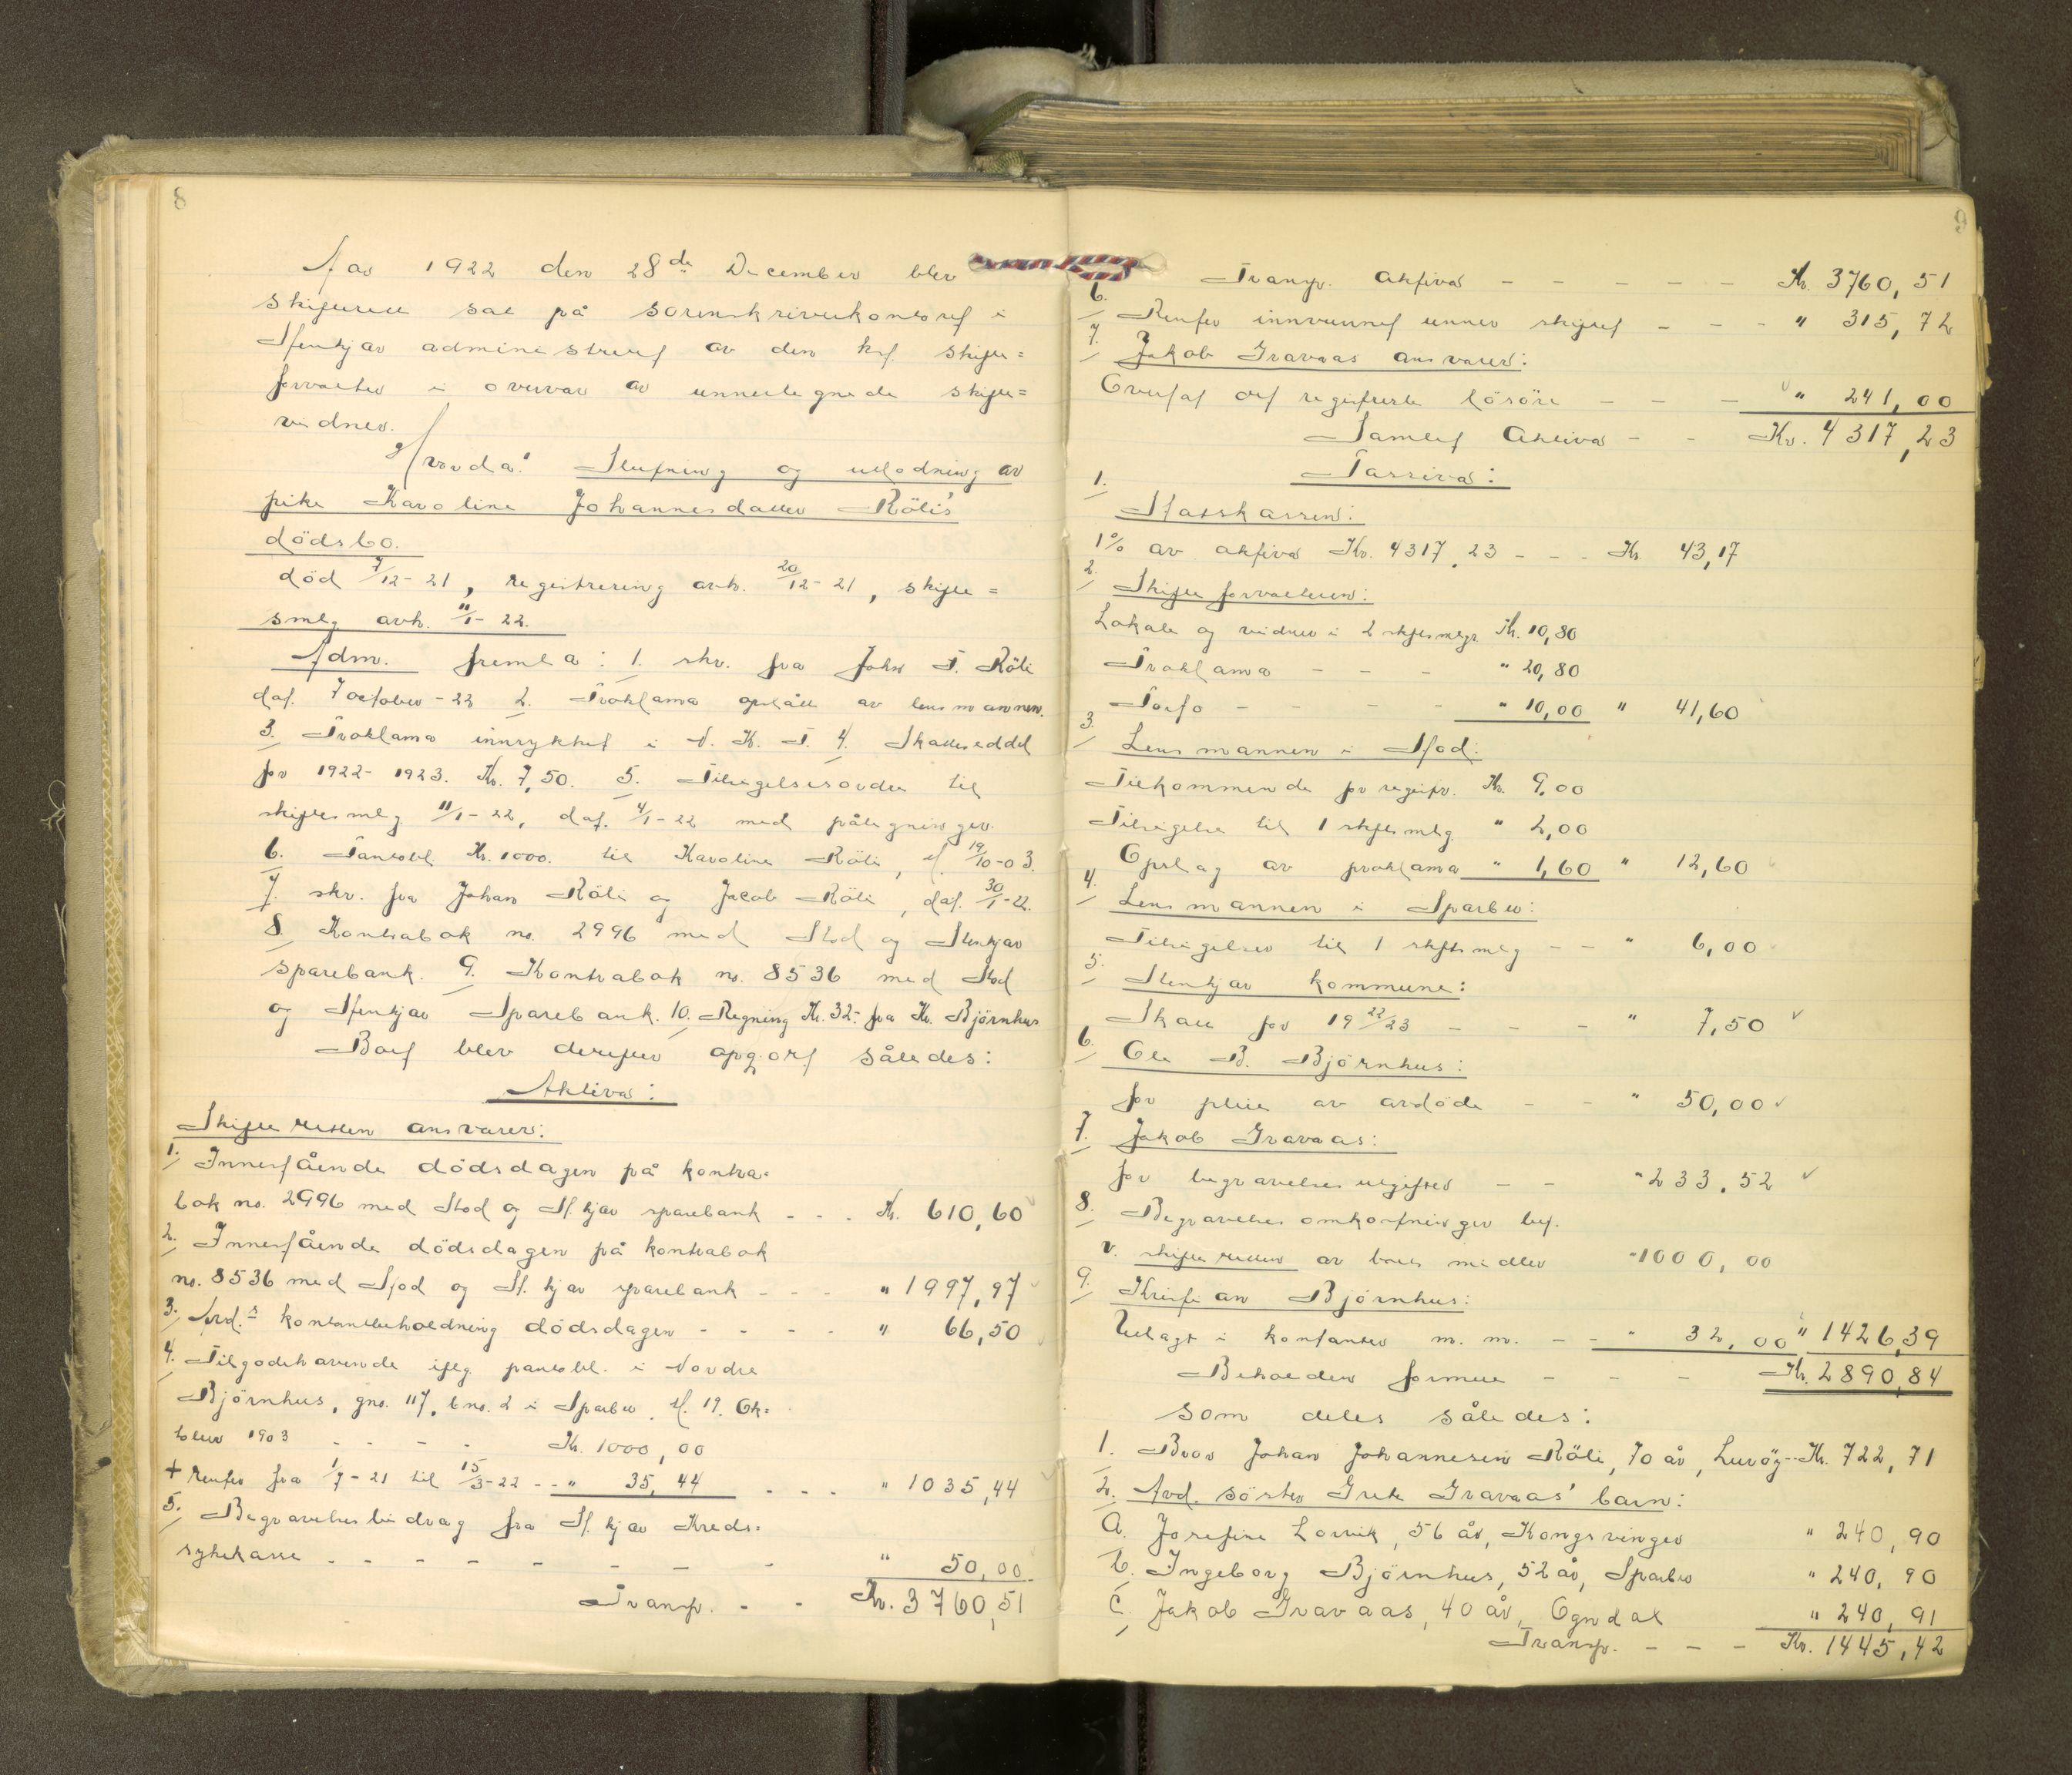 8
Aar 1922 den 28de December blev
skifterett sat på sorenskriverkontoret i
Stenkjær administrert av den kst. skifte=
forvalter i overvær av unnertegnede skifte=
vidner.
Hvorda: Slutning og utlodning av
pike Karoline Johannesdatter Röli's
dödsbo.
död 7/12-21, registrering avh. 20/12-21, skifte=
smlg avh. 11/1-22.
Adm. fremla: 1. skr. fra Johan J. Röli
dat. 7 october-22 2. Proklama opslått av lensmannen.
3. Proklama innrykket i N. K. T. 4. Skatteseddel
for 1922-1923. Kr. 7,50. 5. Tilsigelsesordre til
skiftesmlg 11/1-22, dat. 4/1-22 med påtegninger.
6. Pantobl. Kr. 1000. til Karoline Röli, t. 19/10-03.
7. skr. fra Johan Röli og Jacob Röli, dat. 30/1-22.
8. Kontrabok no. 2996 med Stod og Stenkjær
sparebank. 9. Kontrabok no. 8536 med Stod
og Stenkjær Sparebank. 10. Regning Kr. 32.- fra Kr. Björnhus
Boet blev derefter opgjort således:
Aktiva:
Skifteretten ansvarer:
1. Innestående dödsdagen på kontra=
bok no. 2996 med Stod og St. kjær sparebank - - - Kr. 610,60
2. Innestående dödsdagen på kontrabok
no. 8536 med Stod og St. kjær sparebank - - - " 1997,97
3. Avd.s kontantbeholdning dödsdagen - - - - " 66,50
4. Tilgodehavende iflg pantobl. i Nordre
Björnhus, gno. 117, bno. 2 i Sparbu, t. 19. Ok=
tober 1903 - - - - Kr. 1000,00
+ renter fra 1/7-21 til 15/3-22 - - " 35,44 - - - " 1035,44
5. Begravelsesbidrag fra St. kjær Kreds=
sykekasse - - - - - - - - " 50,00
Transp. - - Kr. 3760,51
9
Transp. Aktiva - - - - - Kr. 3760,51
6. Renter innvunnet unner skiftet - - - " 315,72
7. Jakob Gravaas ansvarer:
Overtat det registrerte lösöre - - - " 241,00
Samlet Aktiva - - Kr. 4317,23
Passiva:
1. Statskassen:
1% av aktiva Kr. 4317,23 - - - Kr. 43,17
2. Skifteforvalteren:
Lokale og vidner i 2 skftesmlgr. Kr. 10,80
Proklama - - - " 20,80
Porto - - - - " 10,00 " 41,60
3. Lensmannen i Stod:
Tilkommende for registr. Kr. 9,00
Tilsigelse til 1 skftesmlg. " 2,00
Opslag av proklama " 1,60 " 12,60
4. Lensmannen i Sparbu:
Tilsigelser til 1 skftsmlg - - " 6,00
5. Stenkjær kommune:
Skatt for 19 22/23 - - - " 7,50
6. Ole B. Björnhus:
for pleie av avdöde - - " 50,00
7. Jakob Gravaas:
for begravelsesutgifter - - " 233,52
8. Begravelsesomkostninger bet.
v. skifteretten av boets midler " 1000,00
9. Kristian Björnhus:
Utlagt i kontanter m. m. - - " 32,00 " 1426,39
Beholden formue - - - Kr. 2890,84
som deles således:
1. Bror Johan Johannesen Röli, 70 år, Luröy - - Kr. 722,71
2. Avd. söster Grete Gravaas' barn:
a. Josefine Lorvik, 56 år, Kongsvinger " 240,90
b. Ingeborg Björnhus, 52 år, Sparbu " 240,90
c. Jakob Gravaas, 40 år, Ogndal " 240,91
Transp. - - - Kr. 1445,42